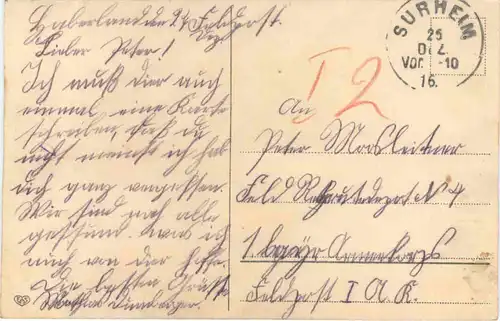 Feldpost.
Lieber Peter!
Ich muß dier auch
einmal eine Karte
schreiben, daß du
nicht meinst ich hab
dich ganz vergessen.
Wir sind noch alle
gesund. was ich
auch von dir hoffe.
Die besten Grüße
SURHEIM
25
DEZ.
Vor. -10
16.
I 2
An
Peter Moosleitner
Feld Rekrutendepot N 4
1. bayr. Armeekorps
Feldpost I A. K.